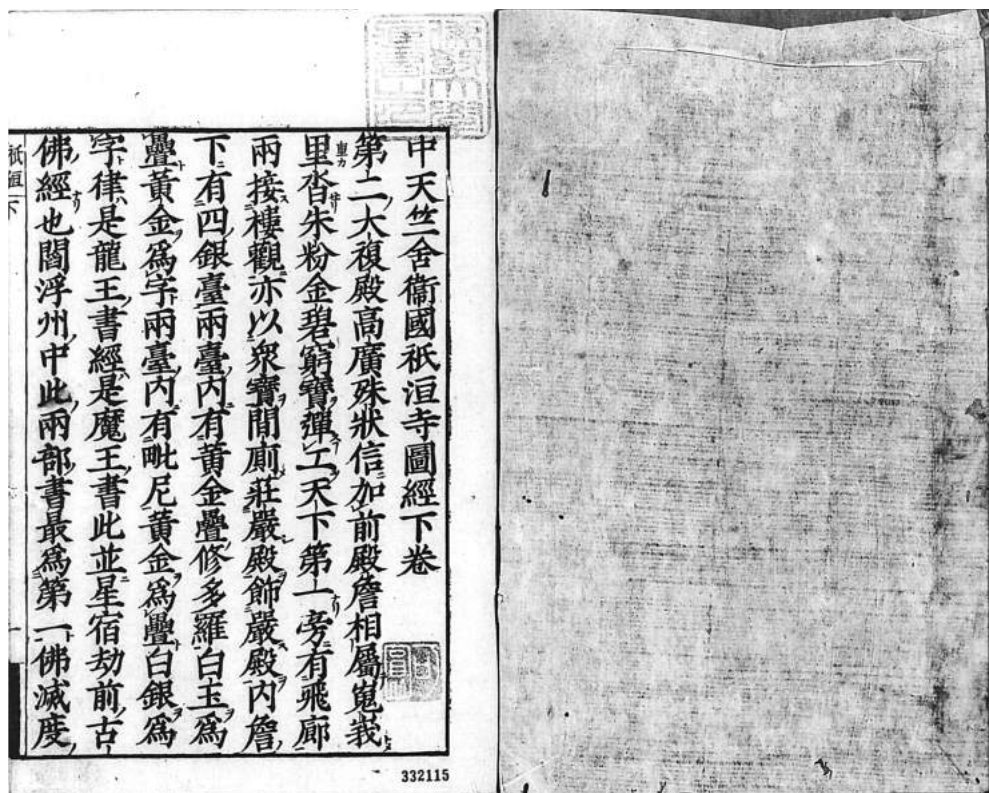 中天竺舍衞國祇洹寺圖經下卷
第二大複殿高廣殊狀信加前殿詹相屬嵬峩
里沓朱粉金碧窮寶殫工天下第一旁有飛廊
兩接樓觀亦以衆寶間廁莊嚴殿飾嚴殿內詹
下有四銀臺兩臺內有黃金疊修多羅白玉爲
疊黃金爲字兩臺內有毗尼黃金爲疊白銀爲
字律是龍王書經是魔王書此並星宿劫前古
佛經也閻浮州中此兩部書最爲第一佛滅度
祇洹下
332115